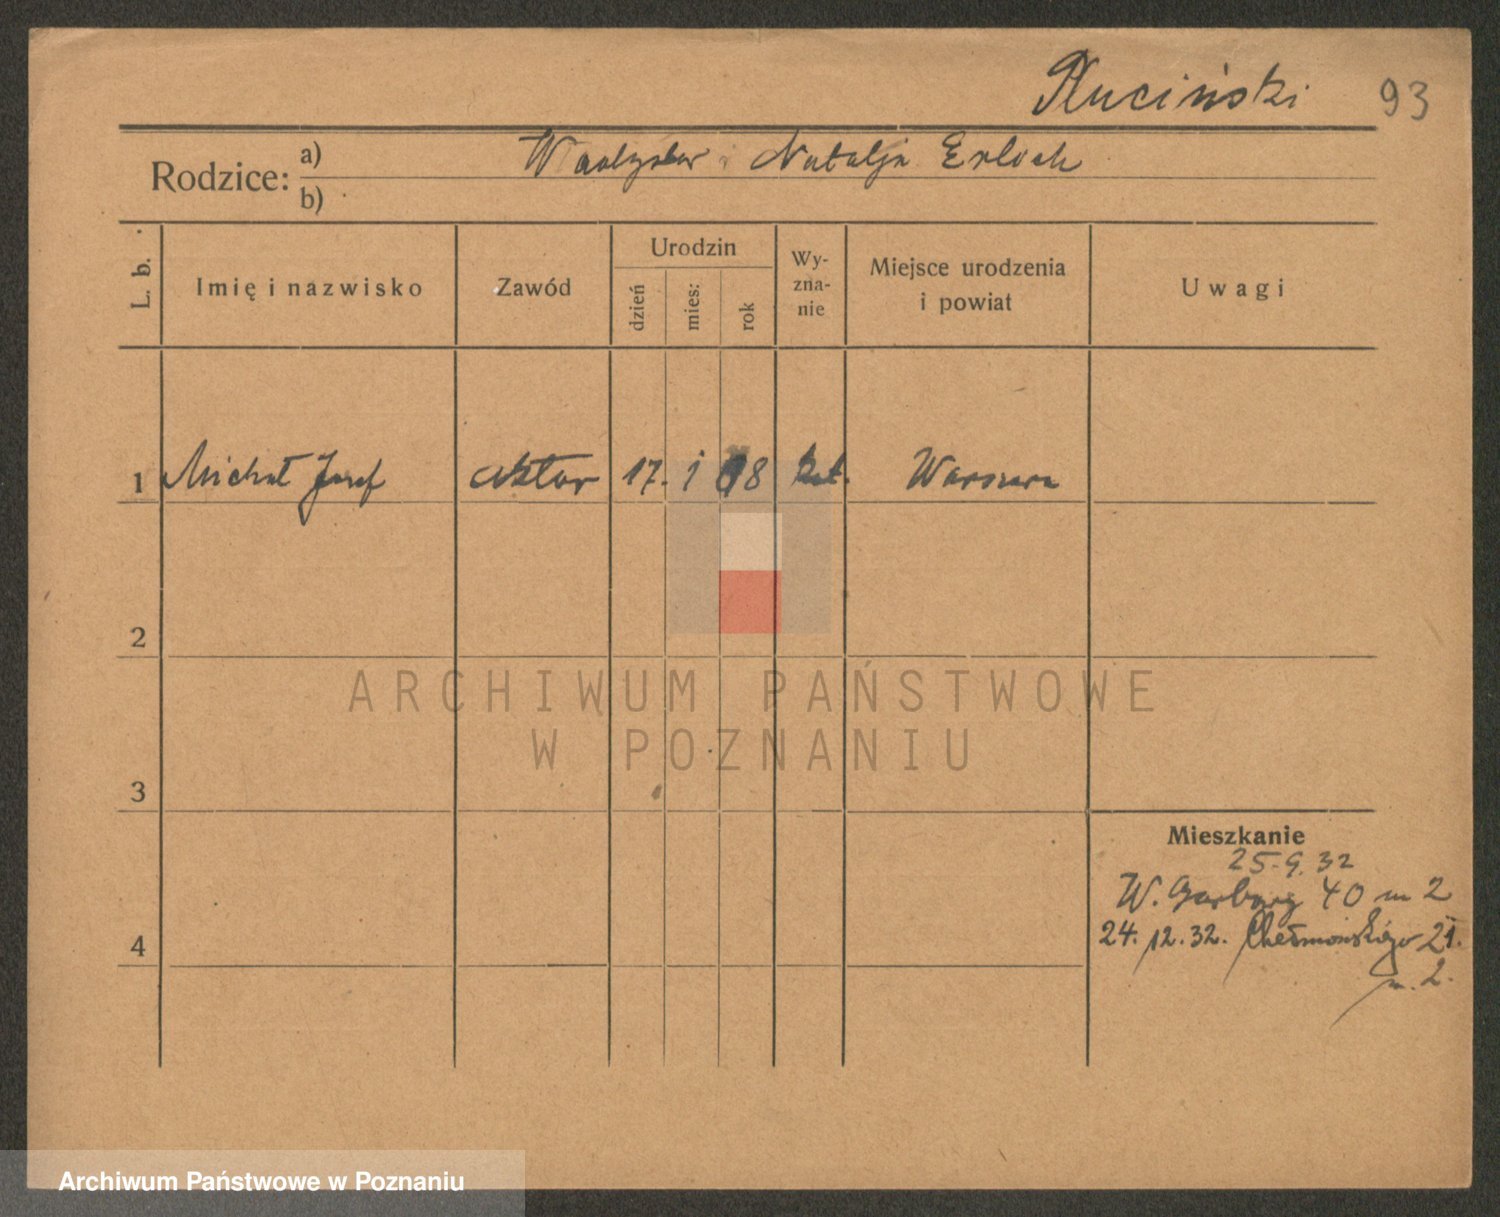 Pluciński 93
Rodzice: a) Władysław i Natalja Erloch
b)
L. b. Imię i nazwisko Zawód Urodzin dzień mies: rok Wy-zna-nie Miejsce urodzenia i powiat Uwagi
1 Michał Józef aktor 17. 1 08 kat. Warszawa
2
ARCHIWUM PAŃSTWOWE
W POZNANIU
3
Mieszkanie
25.9.32
W. Garbary 40 m 2
4
24. 12. 32. Chełmońskiego 21.
m. 2.
Archiwum Państwowe w Poznaniu